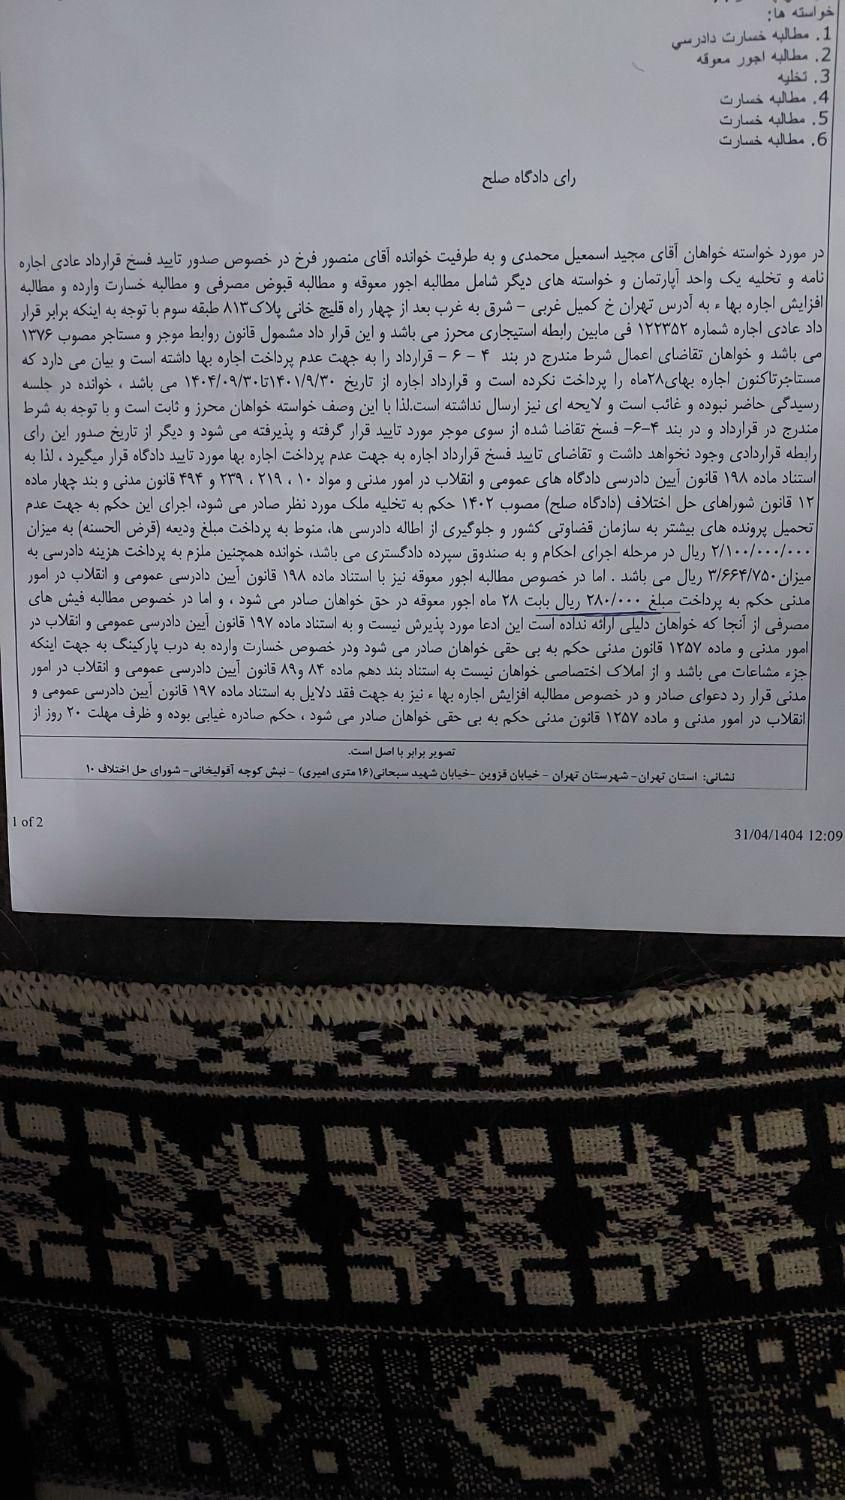 خواسته ها:
1. مطالبه خسارت دادرسي
2. مطالبه اجور معوقه
3. تخلیه
4. مطالبه خسارت
5. مطالبه خسارت
6. مطالبه خسارت
رای دادگاه صلح
در مورد خواسته خواهان آقای مجید اسمعیل محمدی و به طرفیت خوانده آقای منصور فرخ در خصوص صدور تایید فسخ قرارداد عادی اجاره
نامه و تخلیه یک واحد آپارتمان و خواسته های دیگر شامل مطالبه اجور معوقه و مطالبه قبوض مصرفی و مطالبه خسارت وارده و مطالبه
افزایش اجاره بها ء به آدرس تهران خ کمیل غربی – شرق به غرب بعد از چهار راه قلیچ خانی پلاک۸۱۳ طبقه سوم با توجه به اینکه برابر قرار
داد عادی اجاره شماره ۱۲۲۳۵۲ فی مابین رابطه استیجاری محرز می باشد و این قرار داد مشمول قانون روابط موجر و مستاجر مصوب ۱۳۷۶
می باشد و خواهان تقاضای اعمال شرط مندرج در بند ۴ – ۶ – قرارداد را به جهت عدم پرداخت اجاره بها داشته است و بیان می دارد که
مستاجرتاکنون اجاره بهای۲۸ماه را پرداخت نکرده است و قرارداد اجاره از تاریخ ۱۴۰۱/۹/۳۰تا۱۴۰۴/۰۹/۳۰ می باشد ، خوانده در جلسه
رسیدگی حاضر نبوده و غائب است و لایحه ای نیز ارسال نداشته است.لذا با این وصف خواسته خواهان محرز و ثابت است و با توجه به شرط
مندرج در قرارداد و در بند ۴–۶– فسخ تقاضا شده از سوی موجر مورد تایید قرار گرفته و پذیرفته می شود و دیگر از تاریخ صدور این رای
رابطه قراردادی وجود نخواهد داشت و تقاضای تایید فسخ قرارداد اجاره به جهت عدم پرداخت اجاره بها مورد تایید دادگاه قرار میگیرد ، لذا به
استناد ماده ۱۹۸ قانون آیین دادرسی دادگاه های عمومی و انقلاب در امور مدنی و مواد ۱۰ ، ۲۱۹ ، ۲۳۹ و ۴۹۴ قانون مدنی و بند چهار ماده
۱۲ قانون شوراهای حل اختلاف (دادگاه صلح) مصوب ۱۴۰۲ حکم به تخلیه ملک مورد نظر صادر می شود، اجرای این حکم به جهت عدم
تحمیل پرونده های بیشتر به سازمان قضاوتی کشور و جلوگیری از اطاله دادرسی ها، منوط به پرداخت مبلغ ودیعه (قرض الحسنه) به میزان
۲/۱۰۰/۰۰۰/۰۰۰ ریال در مرحله اجرای احکام و به صندوق سپرده دادگستری می باشد، خوانده همچنین ملزم به پرداخت هزینه دادرسی به
میزان۳/۶۶۴/۷۵۰ ریال می باشد . اما در خصوص مطالبه اجور معوقه نیز با استناد ماده ۱۹۸ قانون آیین دادرسی عمومی و انقلاب در امور
مدنی حکم به پرداخت مبلغ ۲۸۰/۰۰۰ ریال بابت ۲۸ ماه اجور معوقه در حق خواهان صادر می شود ، و اما در خصوص مطالبه فیش های
مصرفی از آنجا که خواهان دلیلی ارائه نداده است این ادعا مورد پذیرش نیست و به استناد ماده ۱۹۷ قانون آیین دادرسی عمومی و انقلاب در
امور مدنی و ماده ۱۲۵۷ قانون مدنی حکم به بی حقی خواهان صادر می شود ودر خصوص خسارت وارده به درب پارکینگ به جهت اینکه
جزء مشاعات می باشد و از املاک اختصاصی خواهان نیست به استناد بند دهم ماده ۸۴ و۸۹ قانون آیین دادرسی عمومی و انقلاب در امور
مدنی قرار رد دعوای صادر و در خصوص مطالبه افزایش اجاره بها ء نیز به جهت فقد دلایل به استناد ماده ۱۹۷ قانون آیین دادرسی عمومی و
انقلاب در امور مدنی و ماده ۱۲۵۷ قانون مدنی حکم به بی حقی خواهان صادر می شود ، حکم صادره غیابی بوده و ظرف مهلت ۲۰ روز از
تصویر برابر با اصل است.
نشانی: استان تهران- شهرستان تهران - خیابان قزوین -خیابان شهید سبحانی(۱۶ متری امیری) - نبش کوچه آقولیخانی- شورای حل اختلاف ۱۰
1 of 2
31/04/1404 12:09